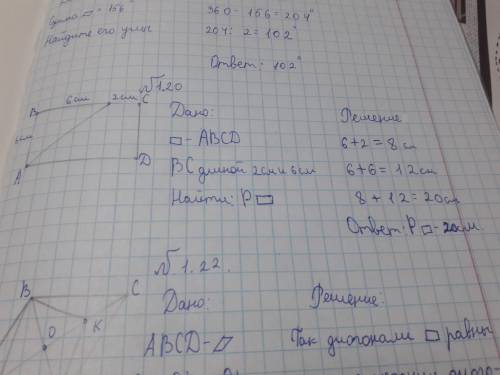 ▱ = 156
360 - 156 = 204°
Найдите его углы
204 : 2 = 102°
Ответ: 102°
№ 1.20
B 6см 2см C
6см
A D
Дано:
▭ - ABCD
BC длиной 2см и 6см
Найти: P ▭
Решение
6+2 = 8 см
6+6 = 12 см
8 + 12 = 20см
Ответ: P ▭ - 20см
№ 1.22.
B C
O K
Дано:
ABCD - ▱
Решение:
Так диогонали ▭ равны